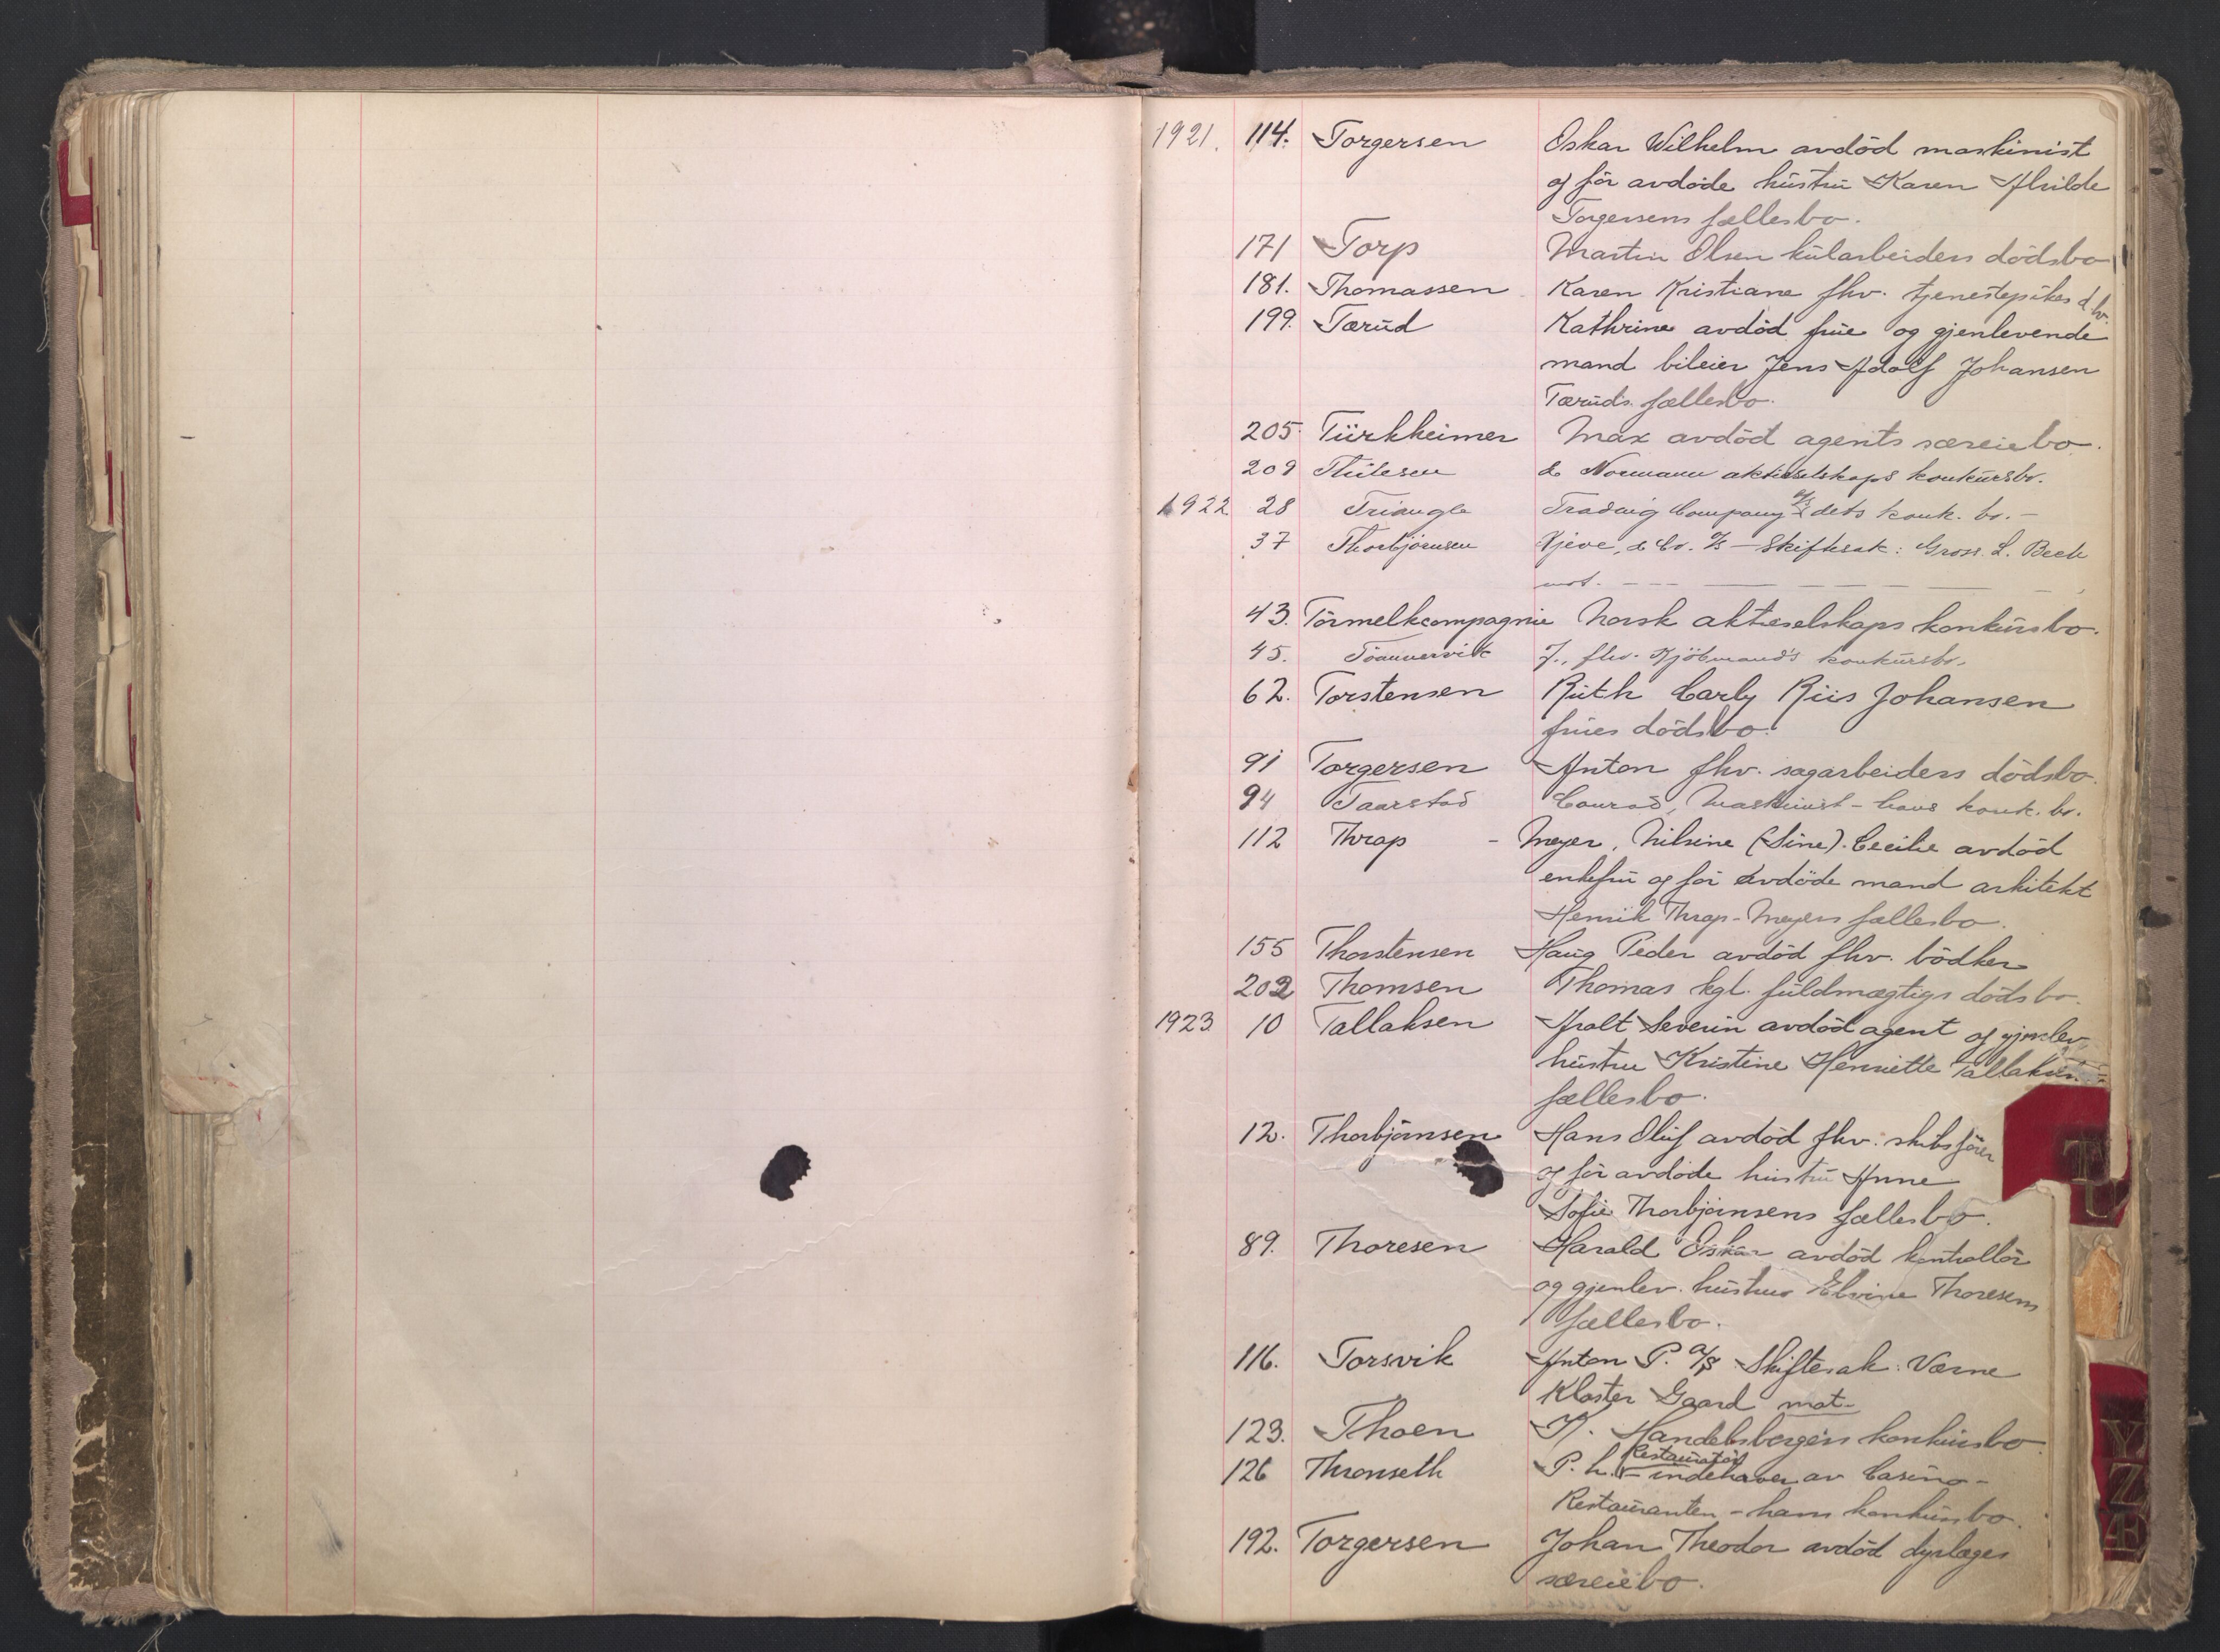 1921. 114. Torgersen Oskar Wilhelm avdöd maskinist
og för avdöde hustru Karen Alvilde
Torgersens fællesbo.
171 Torp Martin Olsen kularbeiders dödsbo
181. Thomassen Karen Kristiane fhv. tjenestepikes d.bo.
199. Tærud Kathrine avdöd frue og gjenlevende
mand bileier Jens Adolf Johansen
Tæruds fællesbo.
205. Türkheimer Max avdöd agents særeiebo.
209 Thilesen & Normann aktieselskaps konkursbo.
1922 28 Triangle Trading Company A/S dets konk. bo. -
37 Thorbjörnsen & Co. A/S - Skiftesak: Gross. L. Beck
mot. - - -
43. Törmelkcompagnie Norsk aktieselskaps konkursbo.
45. Tönnervik J., fhv. Kjöbmand's konkursbo.
62. Torstensen Ruth Carly Riis Johansen
frues dödsbo.
91 Torgersen Anton fhv. sagarbeiders dödsbo.
94 Taarstad Conrad, Maskinist - hans konk. bo.
112 Thrap - Meyer, Nilsine (Sine). Cecilie avdöd
enkefru og för avdöde mand arkitekt
Henrik Thrap-Meyers fællesbo.
155 Thorstensen Haug Peder avdöd fhv. bödker
202 Thomsen Thomas kgl. fuldmægtigs dödsbo.
1923. 10 Tallaksen Aralt Severin avdöd agent og gjenlev.
hustru Kristine Henriette Tallaksens
fællesbo.
12. Thorbjörnsen Hans Oluf avdöd fhv. skibsförer
og för avdöde hustru Anne
Sofie Thorbjörnsens fællesbo.
89. Thoresen Harald Oskar avdöd kontrollör
og gjenlev. hustru Elvine Thoresens
fællesbo.
116. Torsvik Anton P. A/S Skiftesak: Værne
Kloster Gaard mot -
123. Thoen K. Handelsborgers konkursbo.
126 Thronseth P. h. Restauratör - indehaver av Casino -
Restauranten - hans konkursbo.
192. Torgersen Johan Theodor avdöd dyrlæges
særeiebo.
TU
Y
Z
Æ